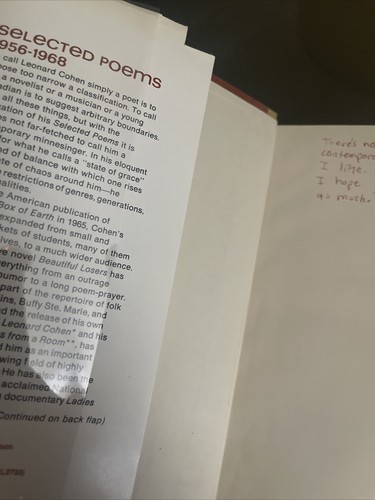 SELECTED POEMS
1956-1968
call Leonard Cohen simply a poet is to
ose too narrow a classification. To call
a novelist or a musician or a young
dian is to suggest arbitrary boundaries.
all these things, but with the
cation of his Selected Poems it is
es not far-fetched to call him a
porary minnesinger. In his eloquent
for what he calls a "state of grace"
nd of balance with which one rises
te of chaos around him—he
restrictions of genres, generations,
nalities.
e American publication of
Box of Earth in 1965, Cohen's
expanded from small and
kets of students, many of them
ives, to a much wider audience.
e novel Beautiful Losers has
erything from an outrage
humor to a long poem-prayer.
part of the repertoire of folk
ins, Buffy Ste. Marie, and
ed the release of his own
Leonard Cohen* and his
s from a Room**, has
d him as an important
wing field of highly
He has also been the
acclaimed National
documentary Ladies
Continued on back flap)
There's no
contempora
I like.
I hope
as much.